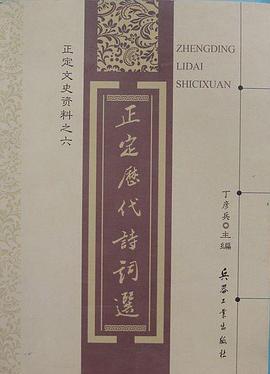 ZHENGDING
LIDAI
SHICIXUAN
正定文史资料之六
正定歷代詩詞選
丁彦兵○主編
兵器工業出版社